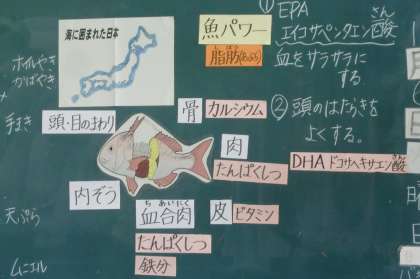 海に囲まれた日本
ホイルやき
かばやき
手まき
天ぷら
ムニエル
魚パワー
脂肪(あぶら)
① EPA
エイコサペンタエン酸
さん
血をサラサラに
する
② 頭のはたらきを
よくする。
DHA ドコサヘキサエン酸
さん
頭・目のまわり
骨
カルシウム
肉
たんぱくしつ
内ぞう
ち あいにく
血合肉
皮
ビタミン
たんぱくしつ
鉄分